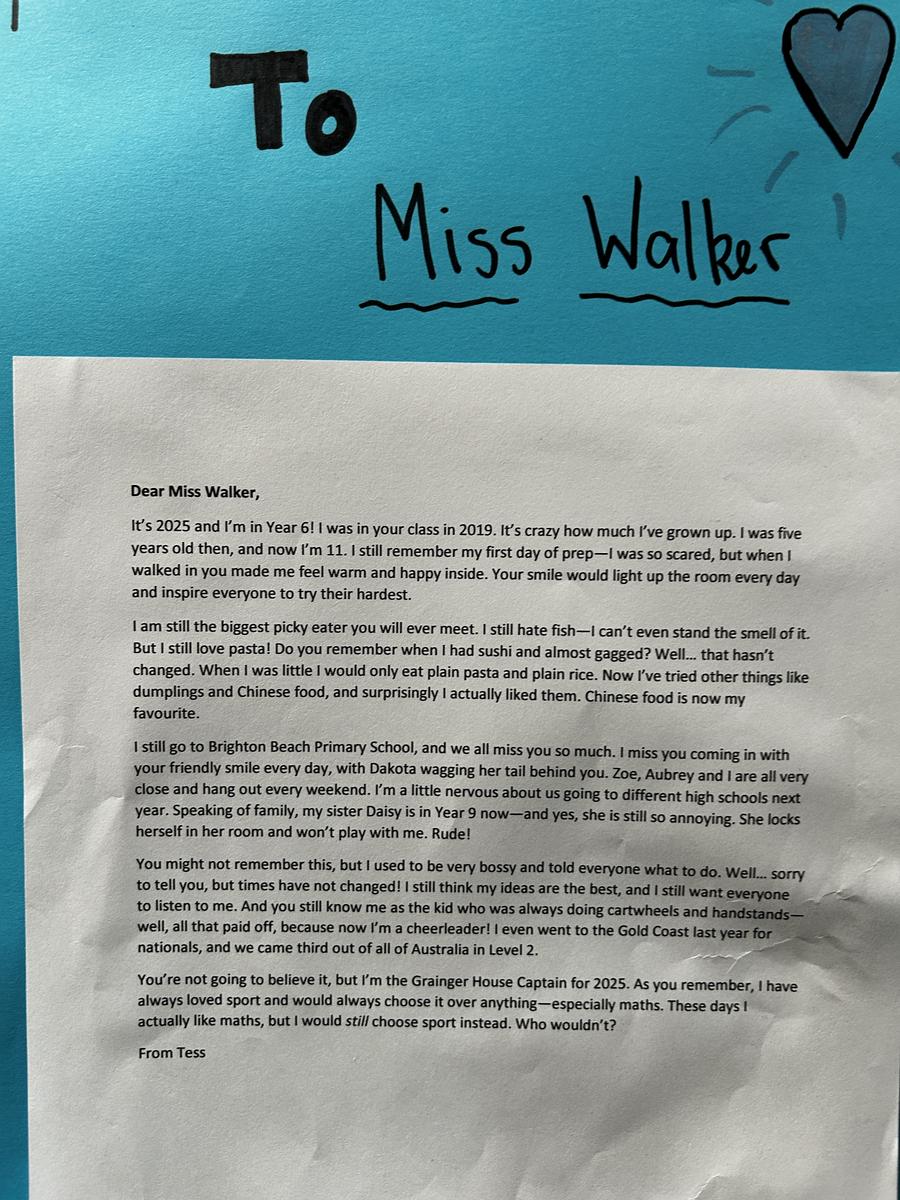 To
Miss Walker
Dear Miss Walker,
It’s 2025 and I’m in Year 6! I was in your class in 2019. It’s crazy how much I’ve grown up. I was five
years old then, and now I’m 11. I still remember my first day of prep—I was so scared, but when I
walked in you made me feel warm and happy inside. Your smile would light up the room every day
and inspire everyone to try their hardest.
I am still the biggest picky eater you will ever meet. I still hate fish—I can’t even stand the smell of it.
But I still love pasta! Do you remember when I had sushi and almost gagged? Well... that hasn’t
changed. When I was little I would only eat plain pasta and plain rice. Now I’ve tried other things like
dumplings and Chinese food, and surprisingly I actually liked them. Chinese food is now my
favourite.
I still go to Brighton Beach Primary School, and we all miss you so much. I miss you coming in with
your friendly smile every day, with Dakota wagging her tail behind you. Zoe, Aubrey and I are all very
close and hang out every weekend. I’m a little nervous about us going to different high schools next
year. Speaking of family, my sister Daisy is in Year 9 now—and yes, she is still so annoying. She locks
herself in her room and won’t play with me. Rude!
You might not remember this, but I used to be very bossy and told everyone what to do. Well... sorry
to tell you, but times have not changed! I still think my ideas are the best, and I still want everyone
to listen to me. And you still know me as the kid who was always doing cartwheels and handstands—
well, all that paid off, because now I’m a cheerleader! I even went to the Gold Coast last year for
nationals, and we came third out of all of Australia in Level 2.
You’re not going to believe it, but I’m the Grainger House Captain for 2025. As you remember, I have
always loved sport and would always choose it over anything—especially maths. These days I
actually like maths, but I would still choose sport instead. Who wouldn’t?
From Tess